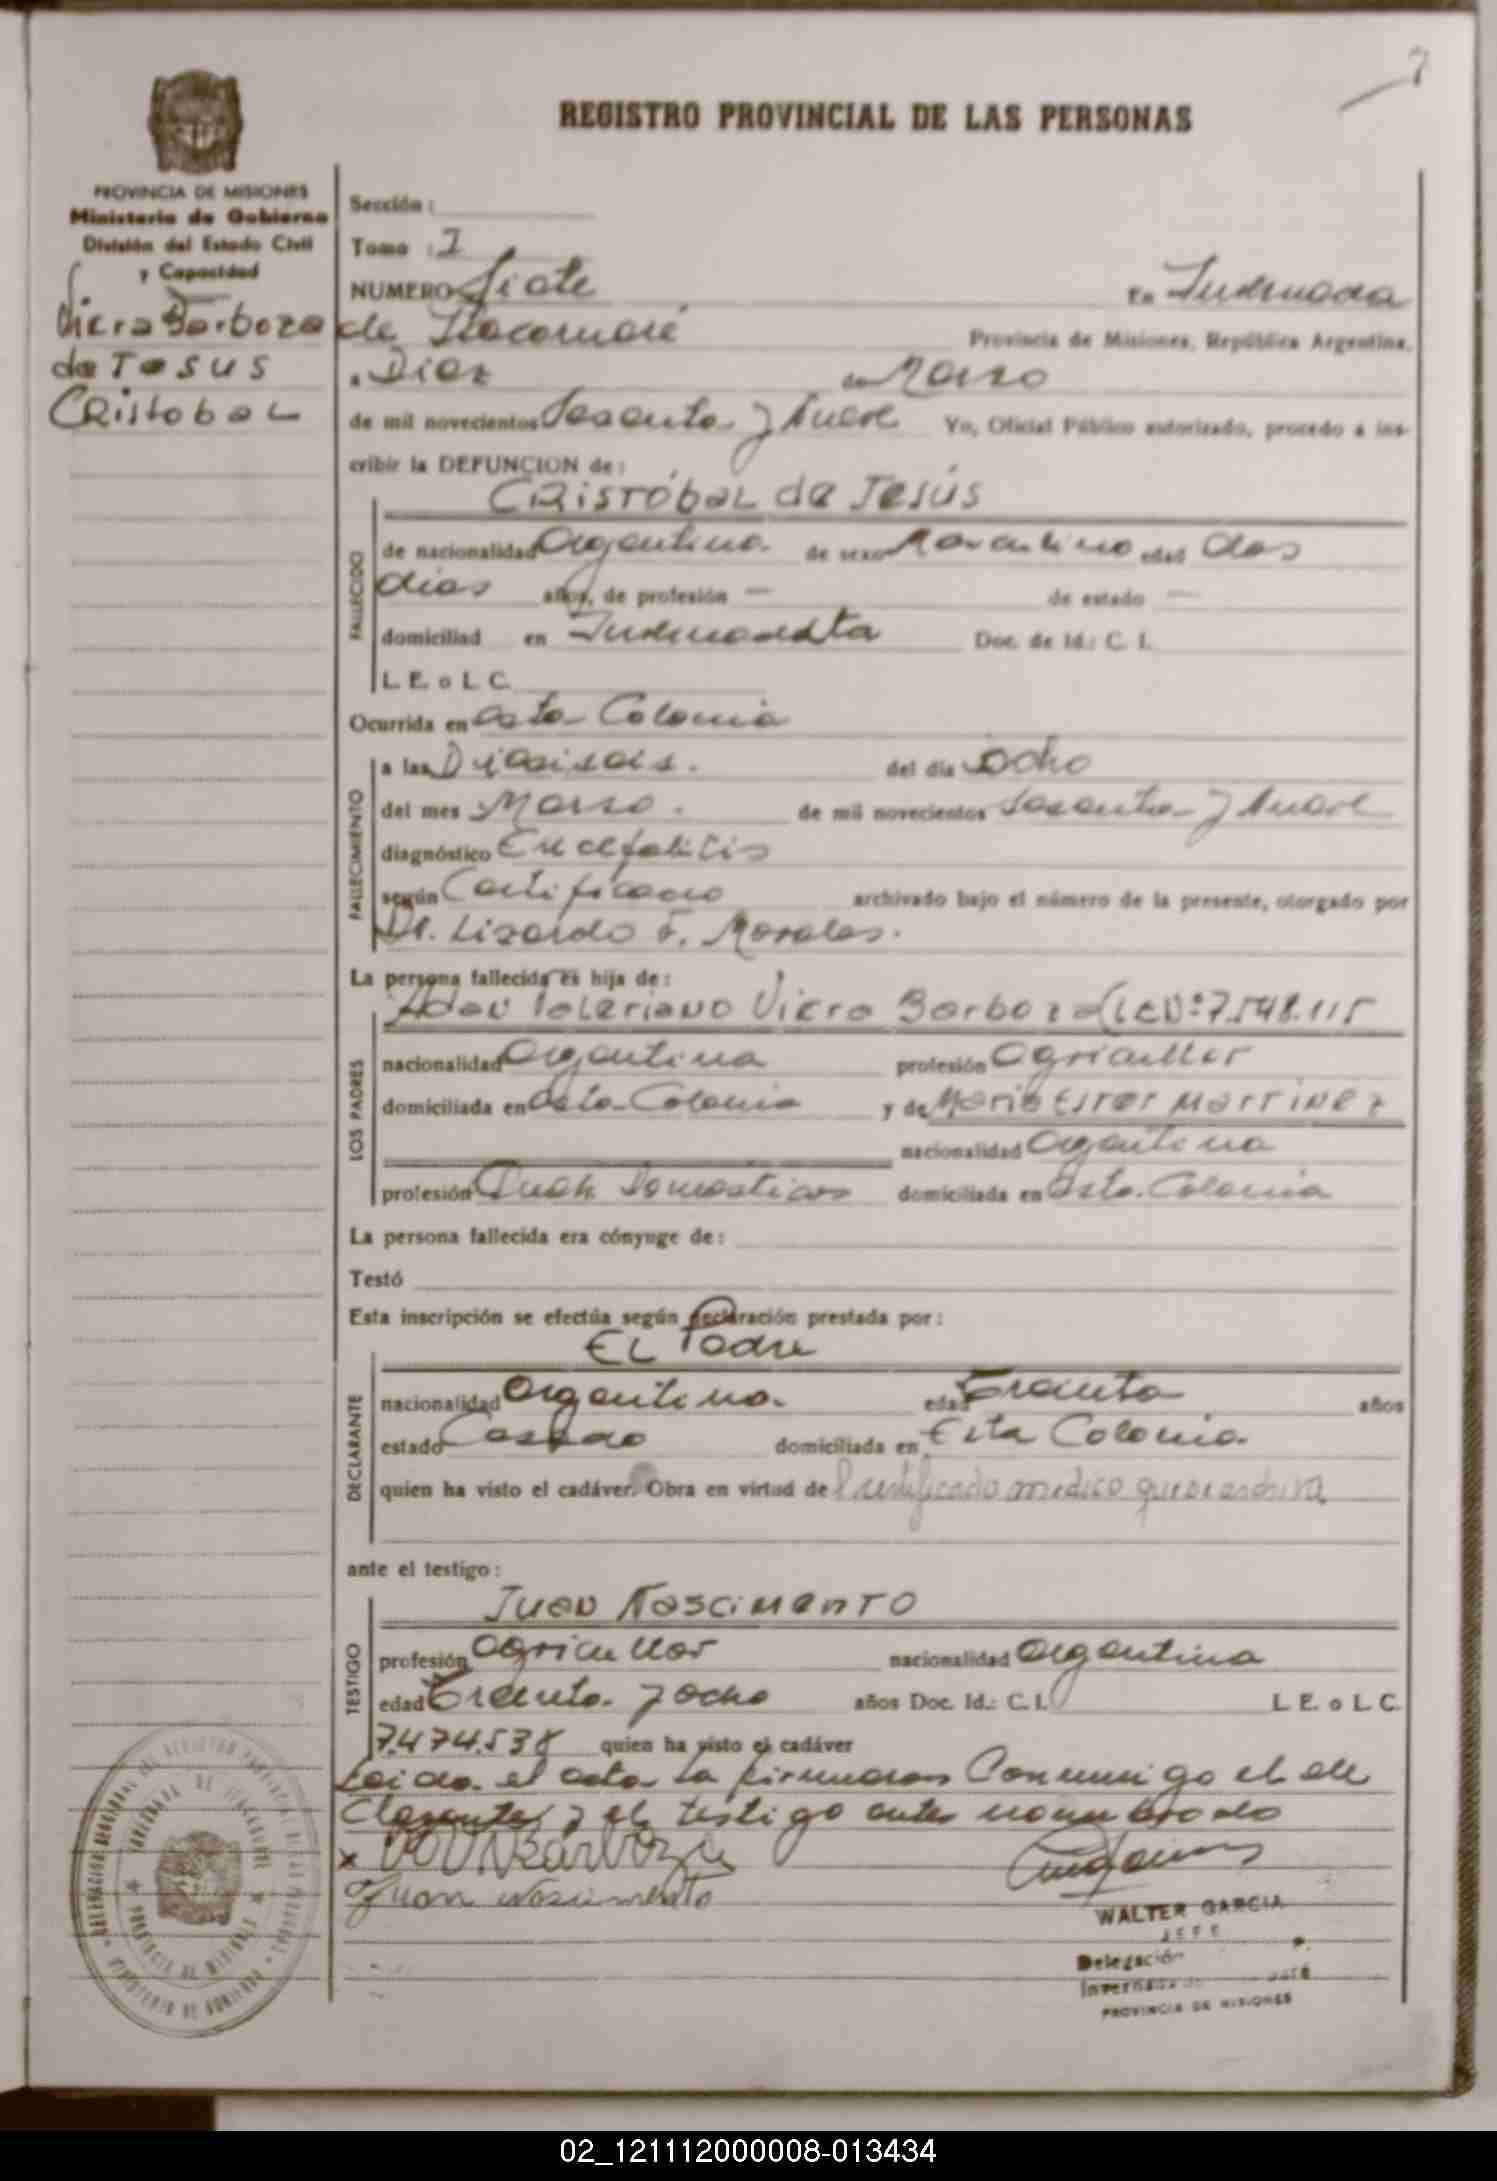 7
REGISTRO PROVINCIAL DE LAS PERSONAS
PROVINCIA DE MISIONES
Ministerio de Gobierno
División del Estado Civil
y Capacidad
Viera Barboza
de Jesus
Cristobal
Sección:
Tomo: I
NUMERO Siete En Invernada
de Itacaruaré Provincia de Misiones, República Argentina,
a Diez de Marzo
de mil novecientos Sesenta y Nueve Yo, Oficial Público autorizado, procedo a ins-
cribir la DEFUNCION de:
CRISTÓBAL de JESÚS
FALLECIDO
de nacionalidad Argentina de sexo Masculino edad dos
dias años, de profesión — de estado —
domiciliad en Doc. de Id.: C. I.
L. E. o L. C.
Ocurrida en esta Colonia
FALLECIMIENTO
a las Dieciseis. del día ocho
del mes Marzo. de mil novecientos Sesenta y Nueve
diagnóstico Encefalitis
según Certificado archivado bajo el número de la presente, otorgado por
Dr. Lizardo F. Morales.
La persona fallecida es hija de:
LOS PADRES
Adan Valeriano Viera Barboza (LE Nº 7.548.115
nacionalidad Argentina profesión Agricultor
domiciliada en esta Colonia y de Maria Ester Martinez
nacionalidad Argentina
profesión Queh. Domesticos domiciliada en Esta Colonia
La persona fallecida era cónyuge de:
Testó
Esta inscripción se efectúa según declaración prestada por:
DECLARANTE
EL Padre
nacionalidad Argentina. edad Treinta años
estado Casado domiciliada en Esta Colonia.
quien ha visto el cadáver. Obra en virtud de certificado medico que se archiva
ante el testigo:
TESTIGO
Juan Nascimento
profesión Agricultor nacionalidad Argentina
edad Treinta y ocho años Doc. Id.: C. I. L. E. o L. C.
7.474.538 quien ha visto el cadáver
Leida el acta la firmaron Conmigo el de
Clarante y el testigo antes nombrado
x Barboza
Juan Nascimento
WALTER GARCIA
JEFE
Delegación
PROVINCIA DE MISIONES
PROVINCIA DE MISIONES
MINISTERIO DE GOBIERNO
02_121112000008-013434